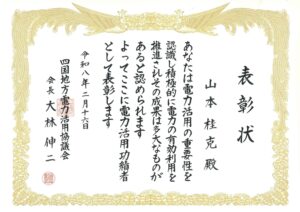 表彰状
山本桂克殿
あなたは電力活用の重要性を
認識し積極的に電力の有効利用を
推進されその成果は多大なものが
あると認められます
よってここに電力活用功績者
として表彰します
令和八年二月十六日
四国地方電力活用協議会
会長 大林伸二